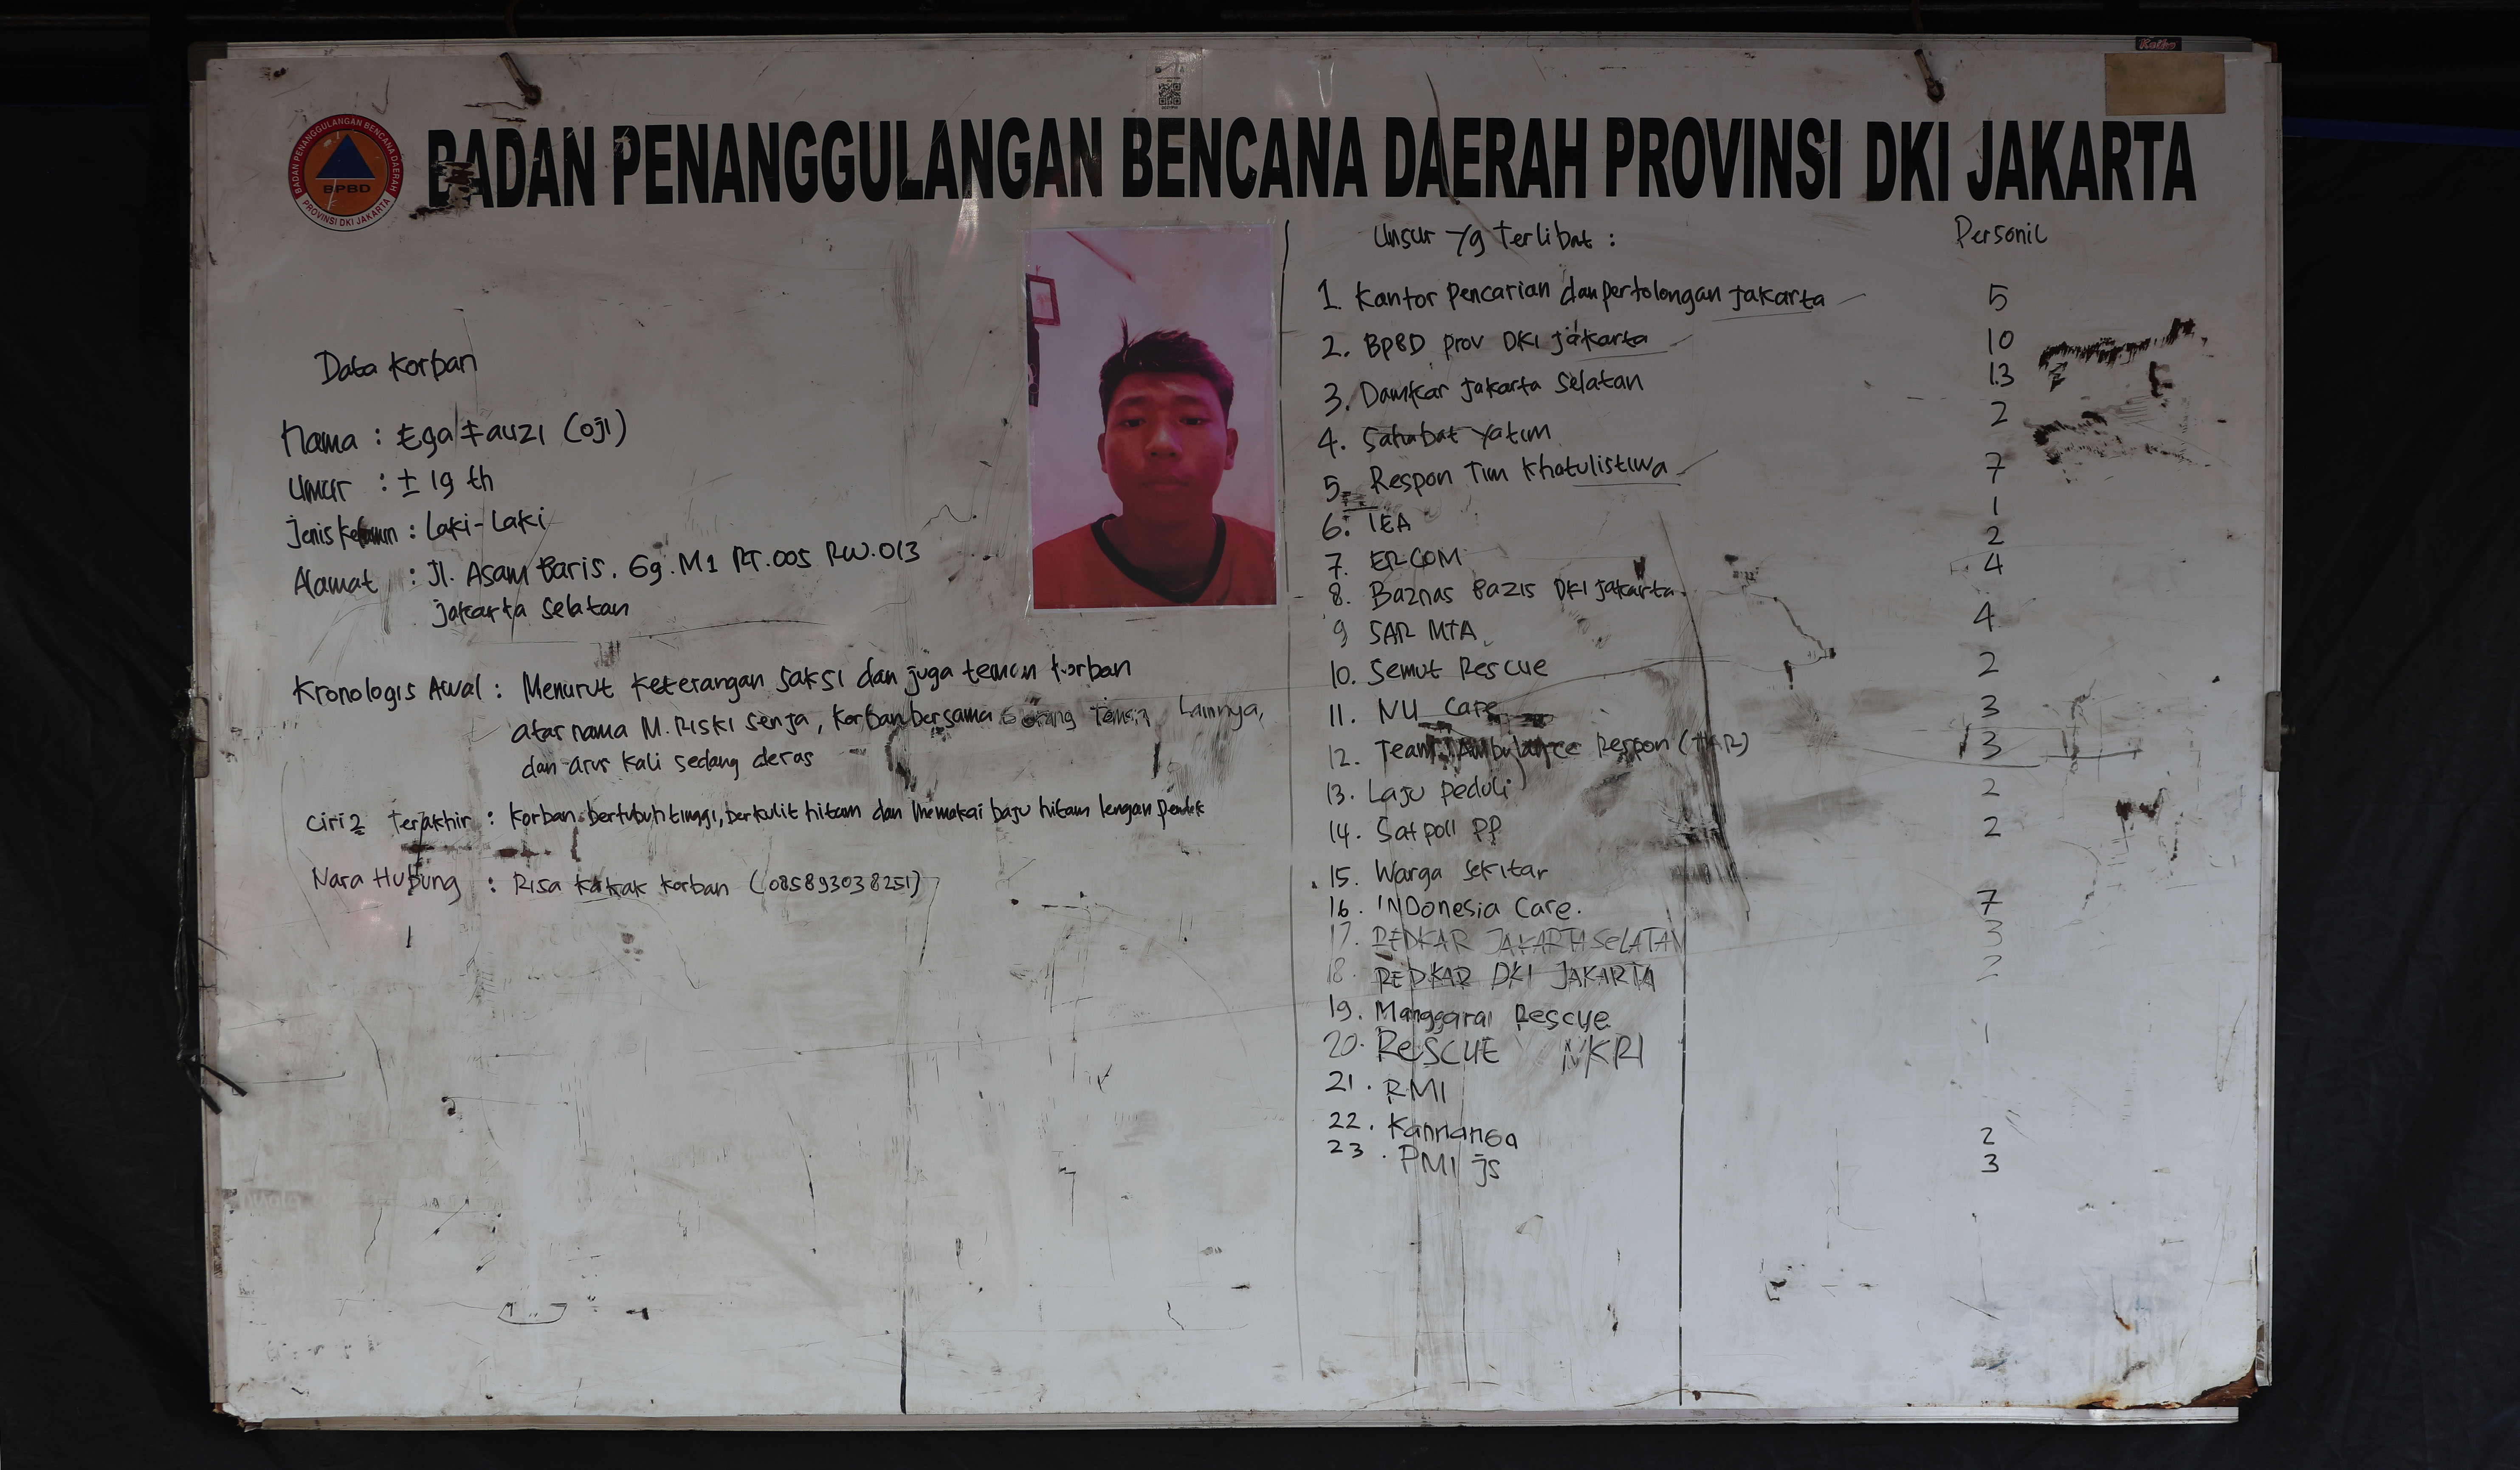 BADAN PENANGGULANGAN BENCANA DAERAH PROVINSI DKI JAKARTA
BADAN PENANGGULANGAN BENCANA DAERAH
BPBD
PROVINSI DKI JAKARTA
Data Korban
Nama : Ega Fauzi (oji)
Umur : ± 19 th
Jenis Kelamin : Laki-Laki
Alamat : Jl. Asam Baris. Gg. M1 RT.005 RW.013
Jakarta Selatan
Kronologis Awal : Menurut keterangan saksi dan juga teman korban
atas nama M. Riski Senja, korban bersama 6 orang teman Lainnya,
dan arus kali sedang deras
Ciri2 Terakhir : Korban bertubuh tinggi, berkulit hitam dan memakai baju hitam lengan pendek
Nara Hubung : Risa kakak korban (085893038251)
Unsur yg Terlibat : Personil
1. Kantor Pencarian dan pertolongan Jakarta 5
2. BPBD prov DKI jakarta 10
3. Damkar Jakarta Selatan 13
4. Sahabat yatim 2
5. Respon Tim Khatulistiwa 7
6. IEA 1
7. ERCOM 2
8. Baznas Bazis DKI Jakarta. 4
9 SAR MTA 4
10. Semut Rescue 2
11. NU Care 3
12. Team Ambulance Respon (TAR) 3
13. Laju Peduli 2
14. Satpoll PP 2
15. Warga sekitar
16. INDonesia Care. 7
17. REDKAR JAKARTA SELATAN 3
18. REDKAR DKI JAKARTA 2
19. Manggarai Rescue
20. RESCUE NKRI 1
21. RMI
22. 2
23. PMI js 3